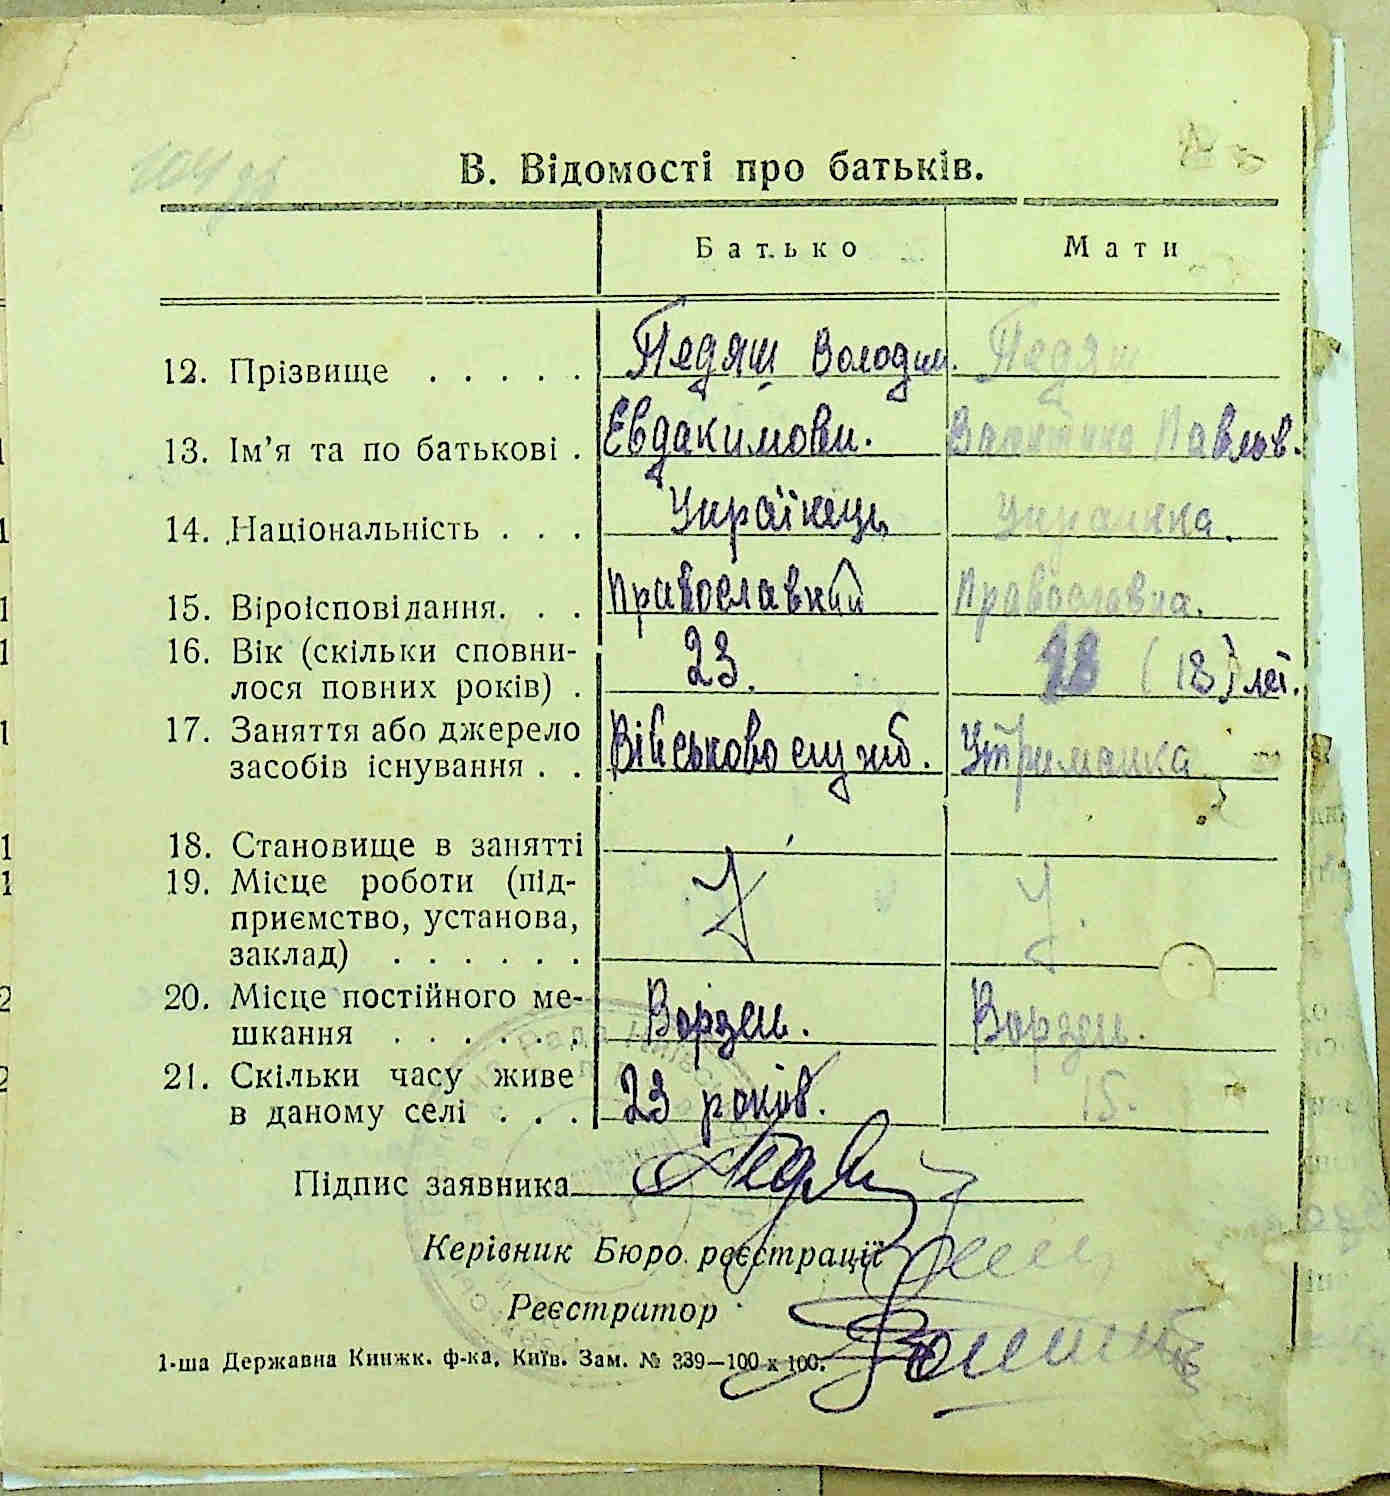 В. Відомості про батьків.
Батько Мати
12. Прізвище . . . . . Педяш Володим. Педяш
13. Ім'я та по батькові . Евдакимови. Валентина Павлов.
14. Національність . . . Українець Украинка.
15. Віроісповідання. . . Православний Православна.
16. Вік (скільки сповни-
лося повних років) . 23. 18 (18) лет.
17. Заняття або джерело
засобів існування . . Військовослужб. Утриманка
18. Становище в занятті
19. Місце роботи (під-
приємство, установа,
заклад) . . . . . .
20. Місце постійного ме-
шкання . . . . . . Ворзель. Ворзель.
21. Скільки часу живе
в даному селі . . . 23 років. 15.
Підпис заявника
Керівник Бюро реєстрації
Реєстратор
1-ша Державна Книжк. ф-ка, Київ. Зам. № 339—100 x 100.